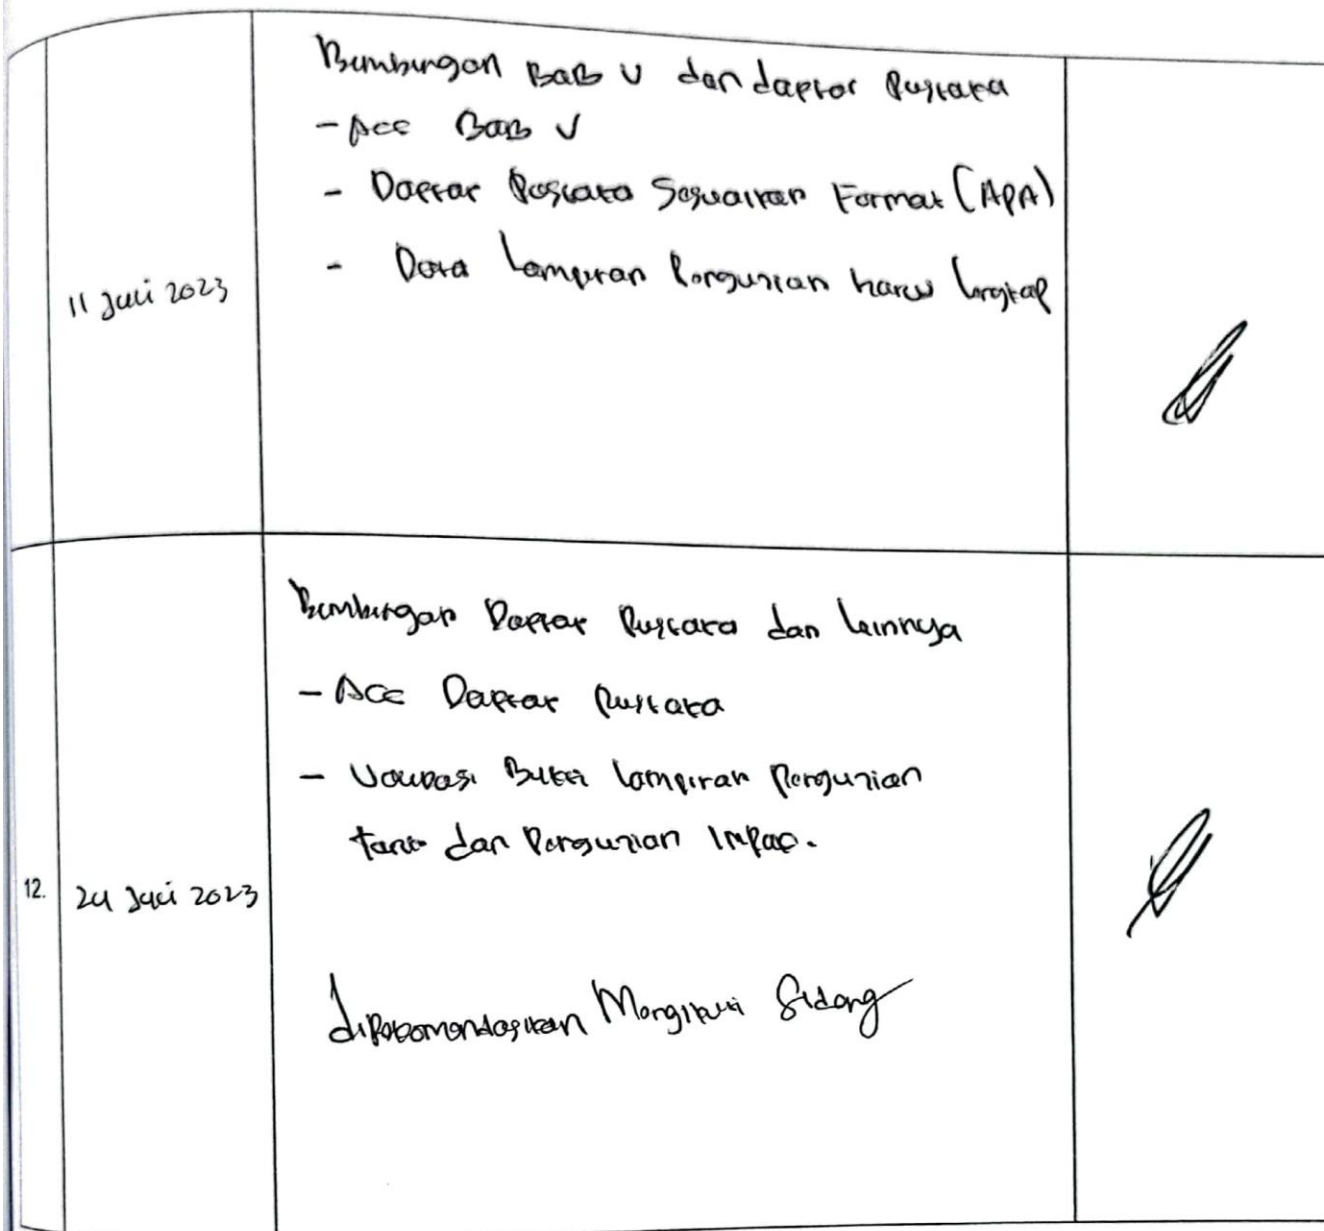 Bimbingan BAB V dan daftar Pustaka
- Acc BAB V
- Daftar Pustaka Sesuaikan Format (APA)
- Data Lampiran Pengujian harus lengkap
11 Juli 2023
Bimbingan Daftar Pustaka dan lainnya
- Acc Daftar Pustaka
- Validasi Bukti lampiran Pengujian
tarik dan Pengujian Impac.
12.
24 Juli 2023
direkomendasikan Mengikuti Sidang